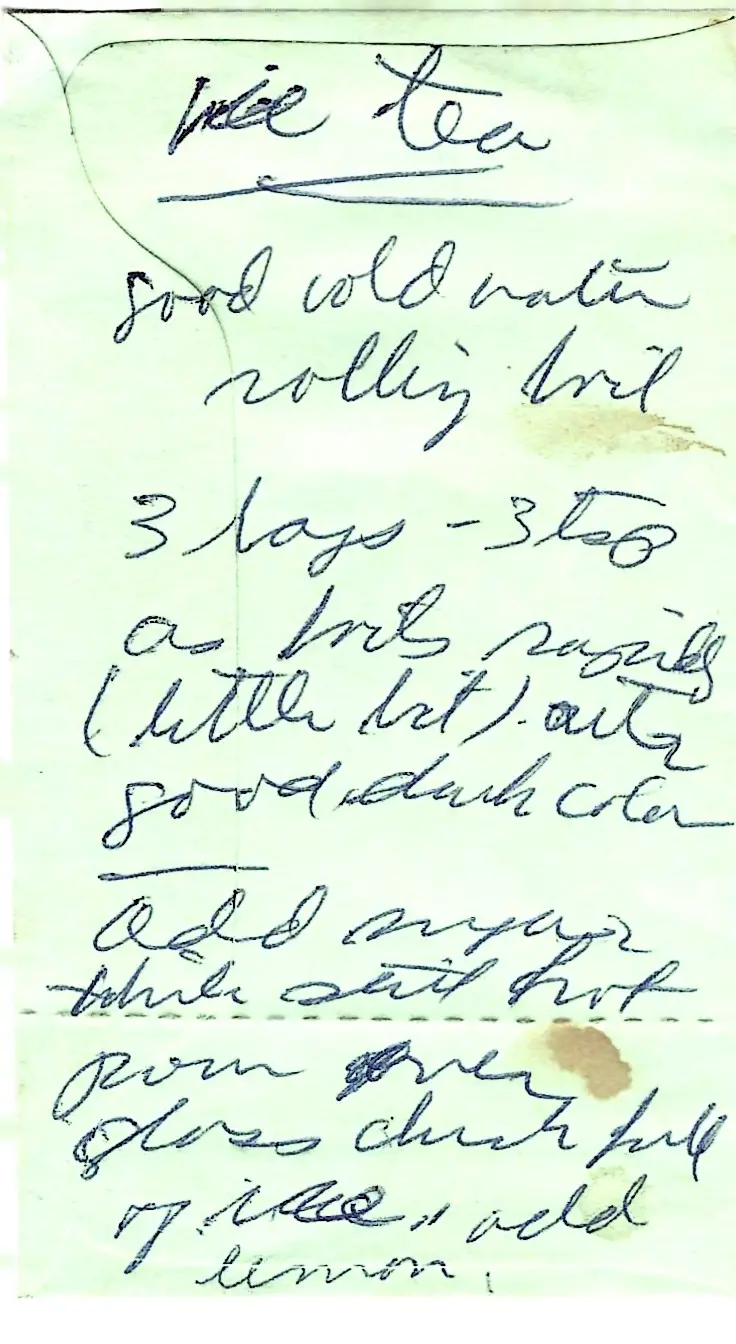 ice tea
good cold water
rolling boil
3 bags - 3 tsp
as boils rapidly
(little bit). after
good dark color
add sugar
while still hot
pour over
glass chuck full
of ice, add
lemon.